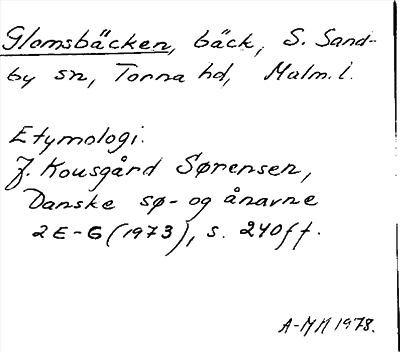 Glomsbäcken, bäck, S. Sand-
by sn, Torna hd, Malm. l.
Etymologi.
J. Kousgård Sørensen,
Danske sø- og ånavne
2 E-G (1973), s. 240 ff.
A-MN 1978.